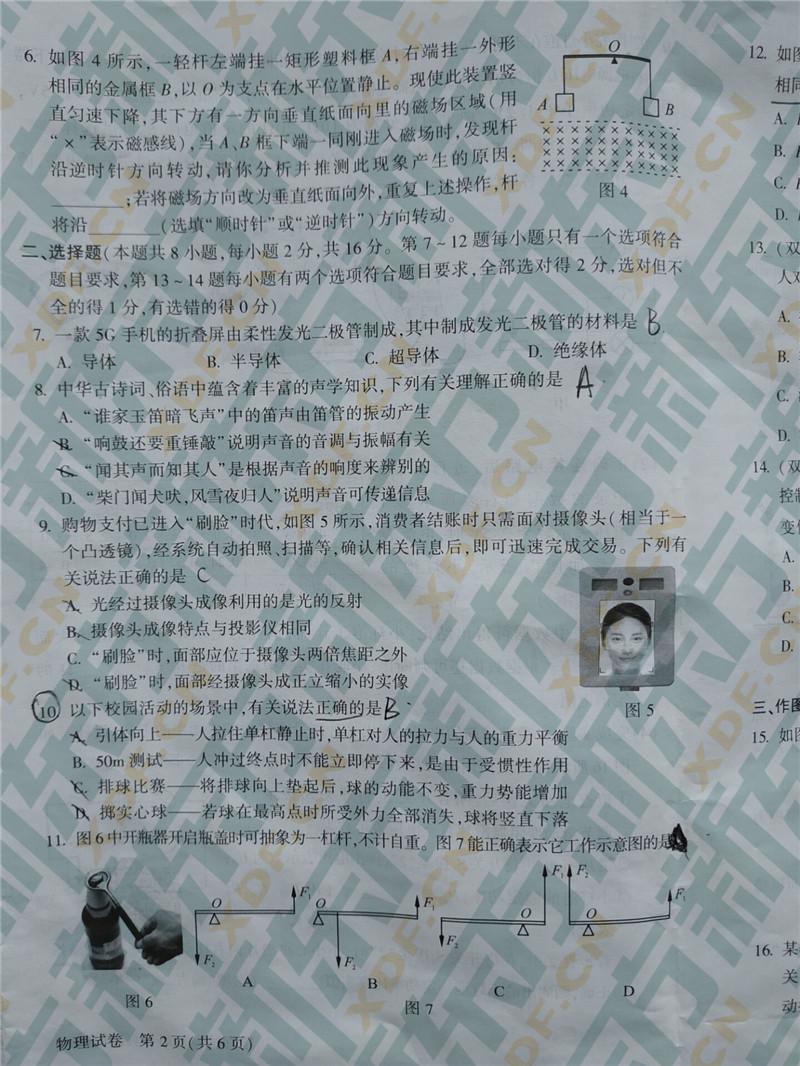 6. 如图 4 所示,一轻杆左端挂一矩形塑料框 A,右端挂一外形
相同的金属框 B,以 O 为支点在水平位置静止。现使此装置竖
直匀速下降,其下方有一方向垂直纸面向里的磁场区域(用
“×”表示磁感线),当 A、B 框下端一同刚进入磁场时,发现杆
沿逆时针方向转动,请你分析并推测此现象产生的原因:
________;若将磁场方向改为垂直纸面向外,重复上述操作,杆
将沿________(选填“顺时针”或“逆时针”)方向转动。
O
A
B
图 4
二、选择题(本题共 8 小题,每小题 2 分,共 16 分。第 7~12 题每小题只有一个选项符合
题目要求,第 13~14 题每小题有两个选项符合题目要求,全部选对得 2 分,选对但不
全的得 1 分,有选错的得 0 分)
7. 一款 5G 手机的折叠屏由柔性发光二极管制成,其中制成发光二极管的材料是 B
A. 导体 B. 半导体 C. 超导体 D. 绝缘体
8. 中华古诗词、俗语中蕴含着丰富的声学知识,下列有关理解正确的是 A
A. “谁家玉笛暗飞声”中的笛声由笛管的振动产生
B. “响鼓还要重锤敲”说明声音的音调与振幅有关
C. “闻其声而知其人”是根据声音的响度来辨别的
D. “柴门闻犬吠,风雪夜归人”说明声音可传递信息
9. 购物支付已进入“刷脸”时代,如图 5 所示,消费者结账时只需面对摄像头(相当于一
个凸透镜),经系统自动拍照、扫描等,确认相关信息后,即可迅速完成交易。下列有
关说法正确的是 C
A. 光经过摄像头成像利用的是光的反射
B. 摄像头成像特点与投影仪相同
C. “刷脸”时,面部应位于摄像头两倍焦距之外
D. “刷脸”时,面部经摄像头成正立缩小的实像
图 5
10. 以下校园活动的场景中,有关说法正确的是 B
A. 引体向上——人拉住单杠静止时,单杠对人的拉力与人的重力平衡
B. 50m 测试——人冲过终点时不能立即停下来,是由于受惯性作用
C. 排球比赛——将排球向上垫起后,球的动能不变,重力势能增加
D. 掷实心球——若球在最高点时所受外力全部消失,球将竖直下落
11. 图 6 中开瓶器开启瓶盖时可抽象为一杠杆,不计自重。图 7 能正确表示它工作示意图的是
O F1 F2
O F1 F2
O F1 F2
F2 O F1
A B C D
图 6
图 7
物理试卷 第 2 页(共 6 页)
12. 如图
相同
A.
B.
C.
D.
13. (双
人对
A.
B.
C.
D.
14. (双
控制
变
A.
B.
C.
D.
三、作图
15. 如图
16. 某
关
动
新东方
XDF.CN